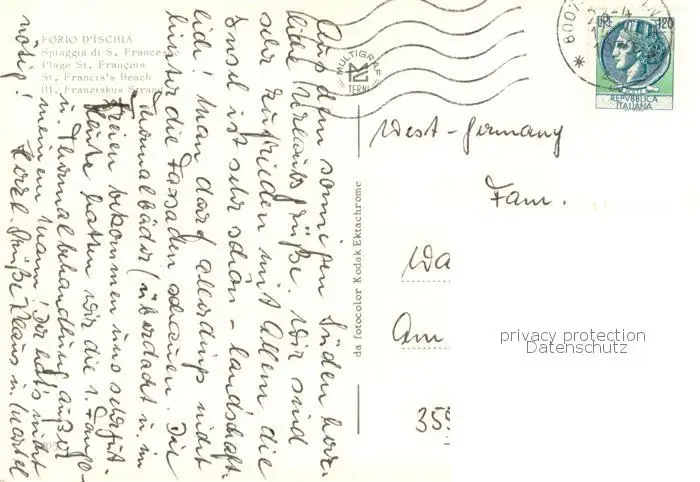 FORIO D'ISCHIA
Spiaggia di S. Francesco
Plage St. François
St. Francis's Beach
Ill. Franziskus Strand
Aus dem sonnigen Süden herz-
liche Urlaubsgrüße. Wir sind
sehr zufrieden mit Allem die
Insel ist sehr schön - landschaft-
lich! Man darf allerdings nicht
hinter die Fassaden schauen. Die
Thermalbäder (überdacht u. im
Freien bekommen uns sehr gut.
Heute hatten wir die 1. Fango-
u. Thermalbehandlung außer
meinem Mann! Der hat's nicht
nötig! Herzl. Grüße Klaus u.
MULTIGRAF
TERNI
da fotocolor Kodak Ektachrome
LIRE 120
REPVBBLICA
ITALIANA
West-Germany
Fam.
Wa
Am
355
privacy protection
Datenschutz